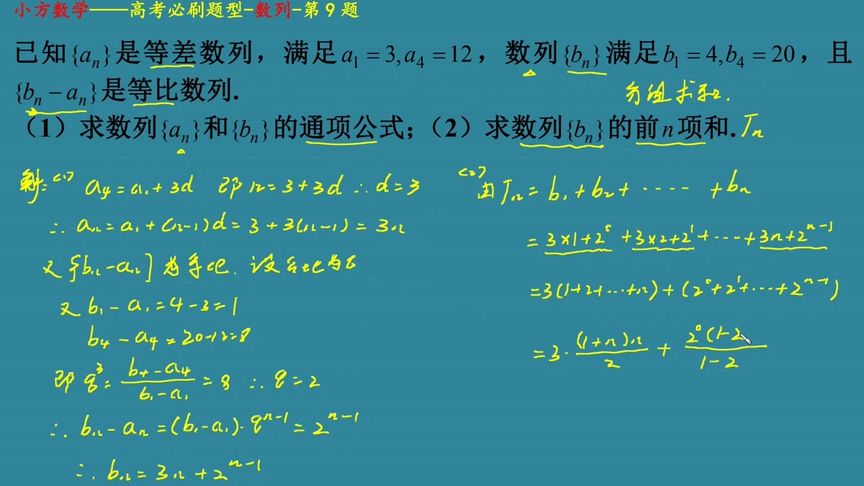 小方数学——高考必刷题型-数列-第9题
已知{aₙ}是等差数列，满足a₁=3,a₄=12，数列{bₙ}满足b₁=4,b₄=20，且
{bₙ-aₙ}是等比数列.
分组求和.
（1）求数列{aₙ}和{bₙ}的通项公式；（2）求数列{bₙ}的前n项和. Tₙ
解:(1) a₄=a₁+3d 即12=3+3d ∴d=3
∴aₙ=a₁+(n-1)d=3+3(n-1)=3n
又{bₙ-aₙ}为等比.设公比为q
又b₁-a₁=4-3=1
b₄-a₄=20-12=8
即q³=(b₄-a₄)/(b₁-a₁)=8 ∴q=2
∴bₙ-aₙ=(b₁-a₁)·qⁿ⁻¹=2ⁿ⁻¹
∴bₙ=3n+2ⁿ⁻¹
(2) 由Tₙ=b₁+b₂+····+bₙ
=3×1+2⁰+3×2+2¹+···+3n+2ⁿ⁻¹
=3(1+2+···+n)+(2⁰+2¹+···+2ⁿ⁻¹)
=3·(1+n)n/2+2⁰(1-2/1-2